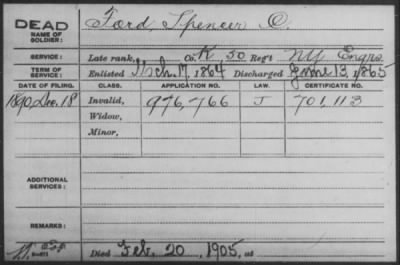 DEAD Ford, Spencer O.
NAME OF SOLDIER:
SERVICE: Late rank, Co. K 50 Reg't NY Engrs.
TERM OF SERVICE: Enlisted Mch. 17, 1864 Discharged June 13, 1865
DATE OF FILING. CLASS. APPLICATION NO. LAW. CERTIFICATE NO.
1890, Dec. 18 Invalid, 976,766 J 701,113
Widow,
Minor,
ADDITIONAL SERVICES:
REMARKS:
Died Feb. 20, 1905, at